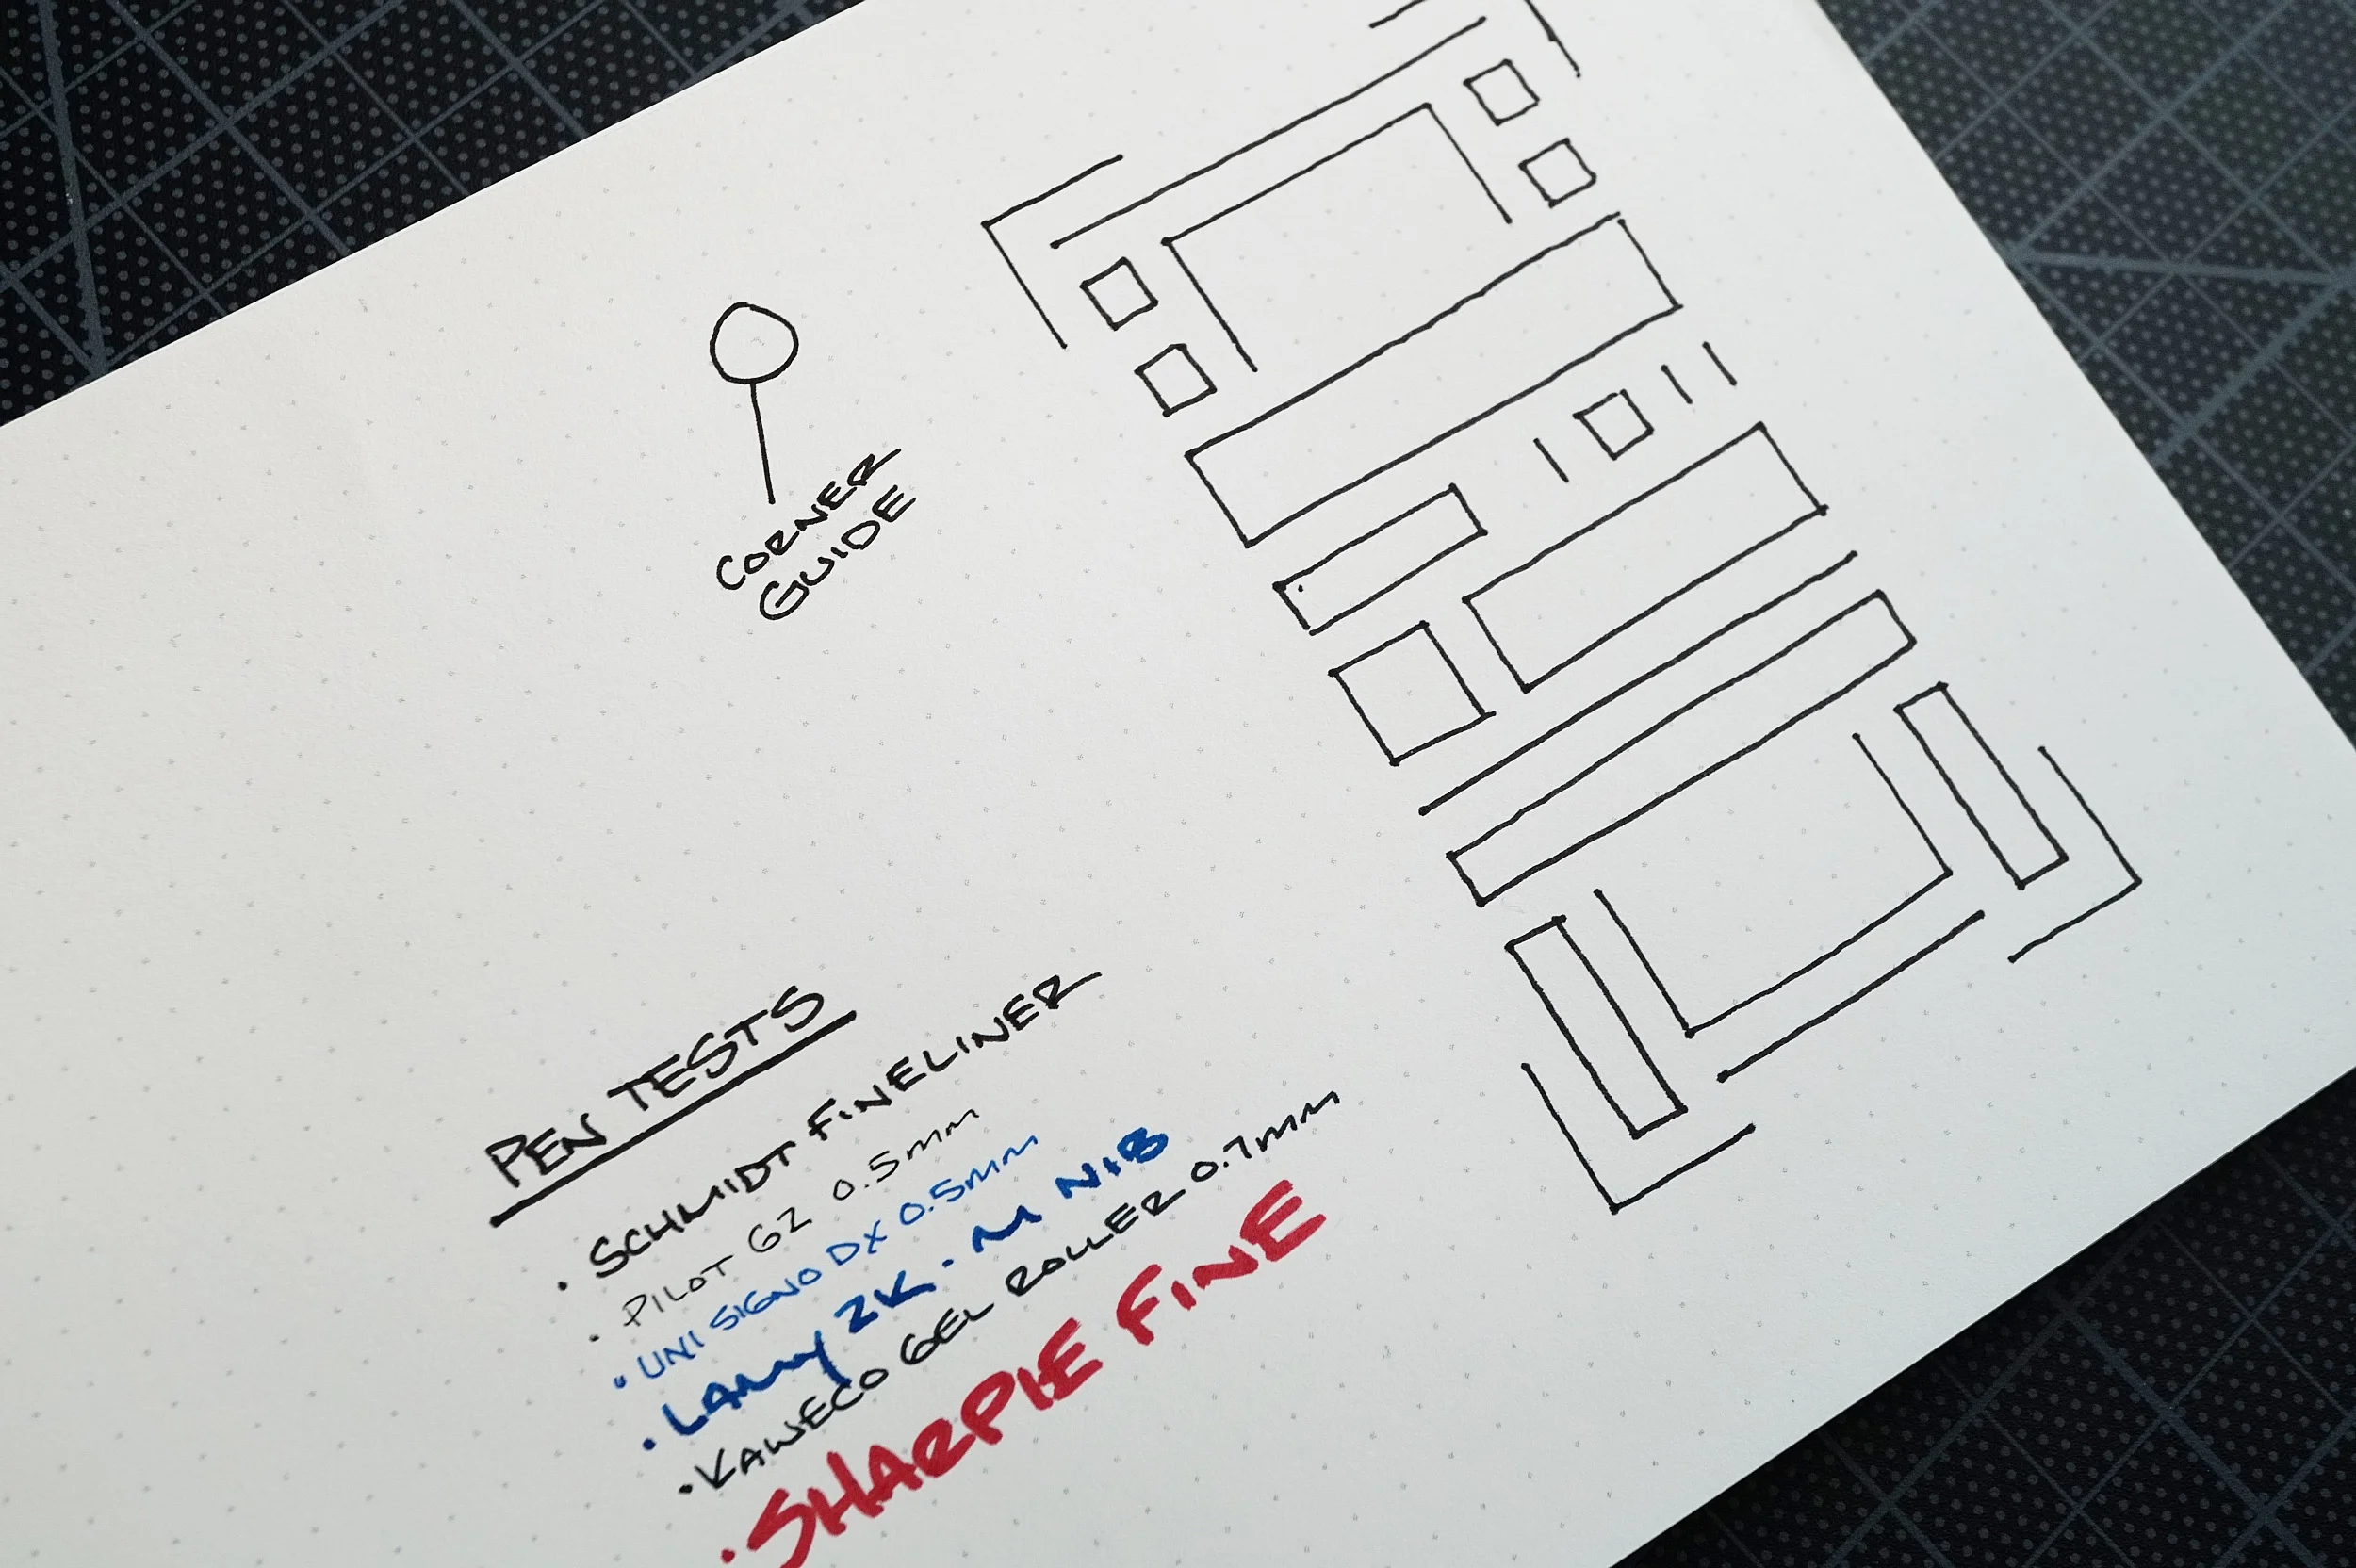 CORNER
GUIDE
PEN TESTS
• SCHMIDT FINELINER
• PILOT G2 0.5mm
• UNI SIGNO DX 0.5mm
• LAMY 2K • M NIB
• KAWECO GEL ROLLER 0.7mm
• SHARPIE FINE